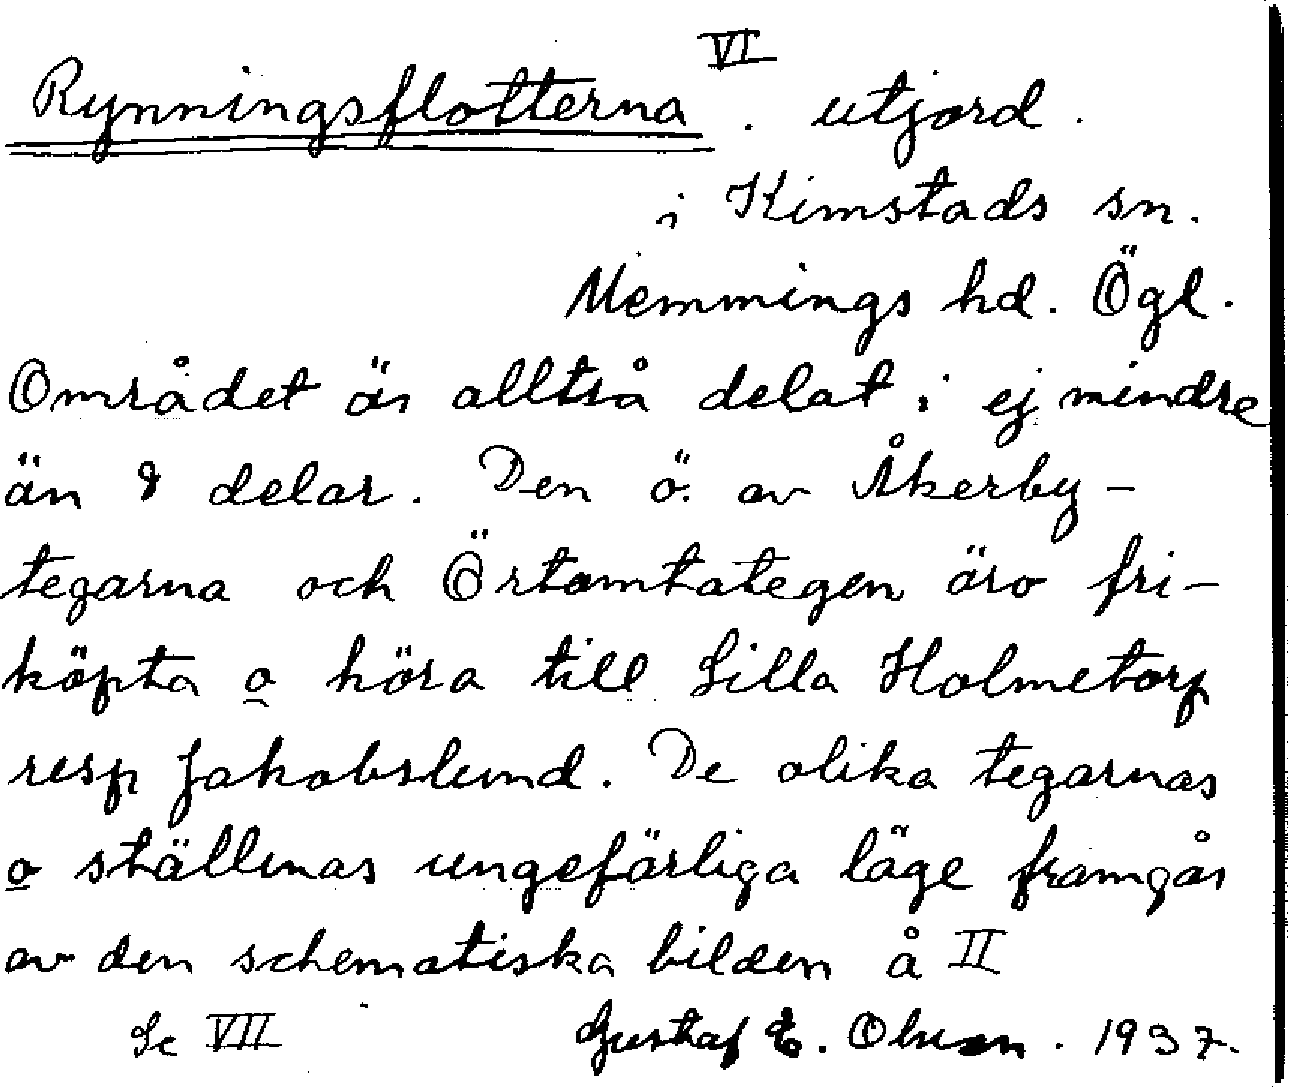 VI
Rynningsflotterna . utjord .
i Kimstads sn.
Memmings hd. Ögl.
Området är alltså delat i ej mindre
än 8 delar. Den ö. av Åkerby-
tegarna och Örtomtategen äro fri-
köpta o höra till Lilla Holmetorp
resp Jakobslund. De olika tegarnas
o ställenas ungefärliga läge framgår
av den schematiska bilden å II
Se VII Gustaf E. Olsson . 1937.